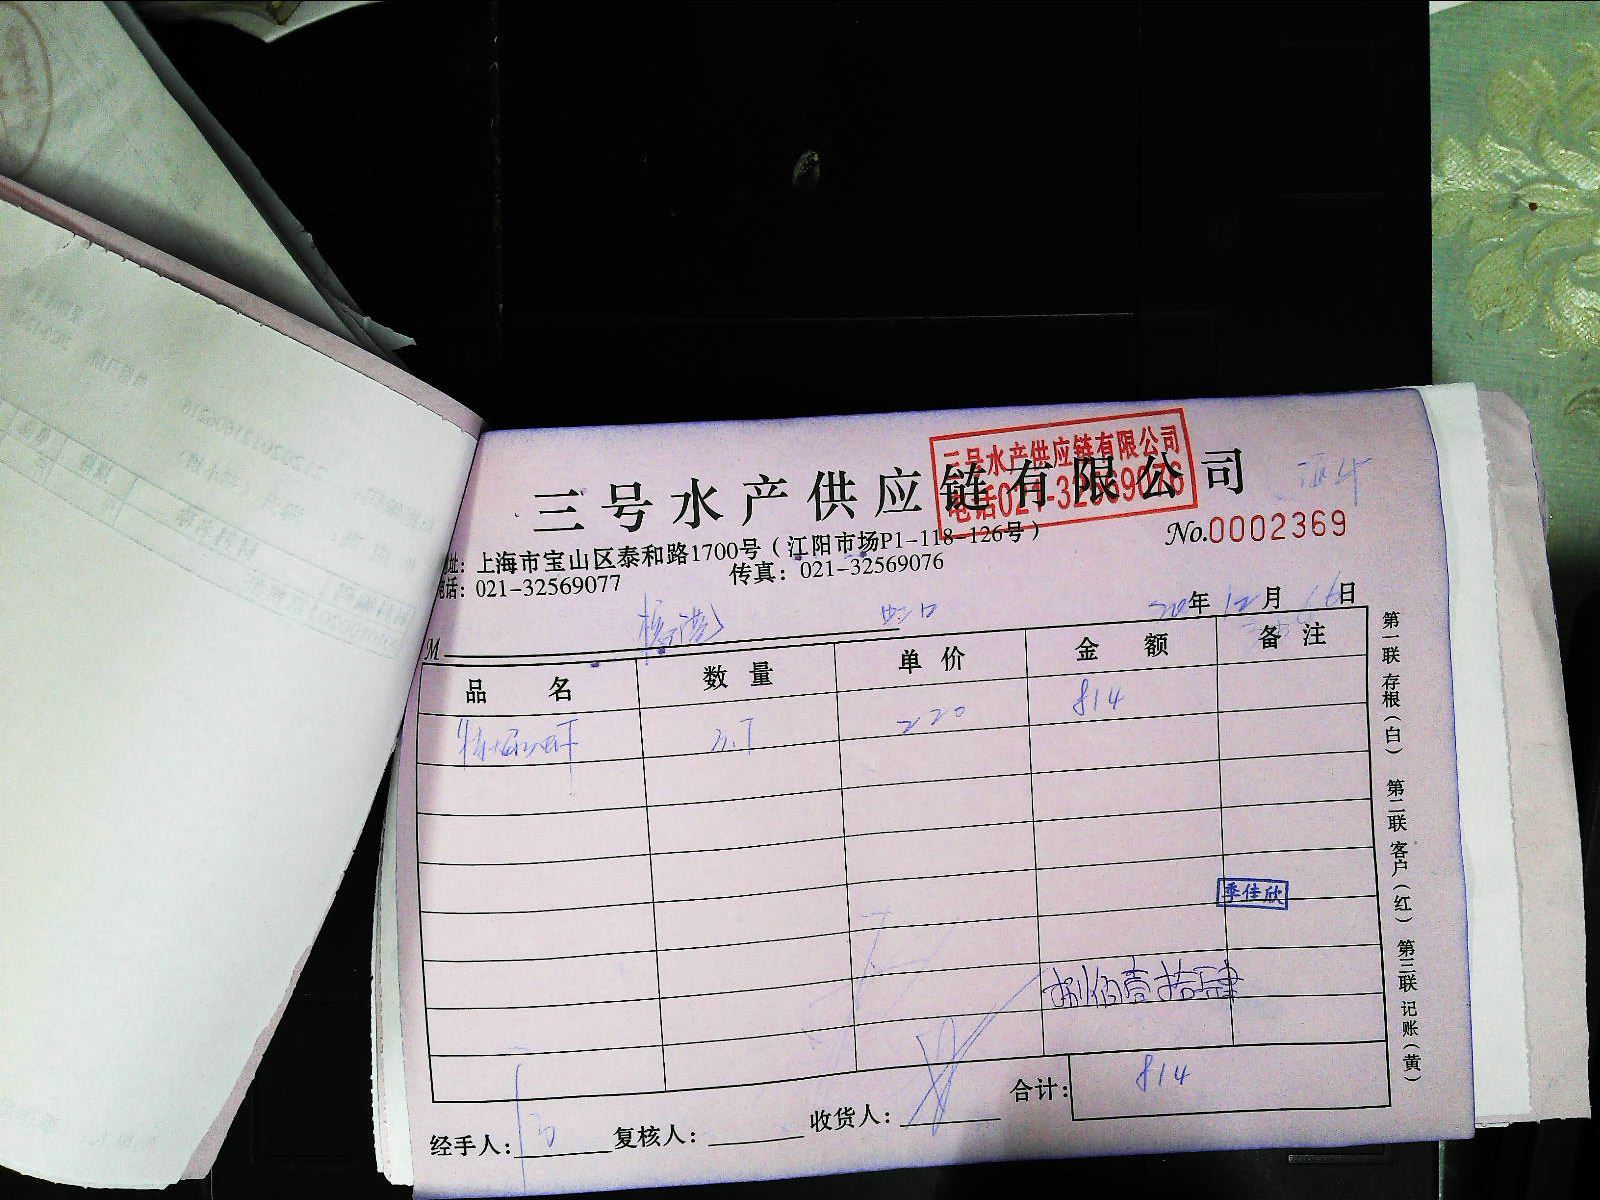 三号水产供应链有限公司
三号水产供应链有限公司
电话021-32569076
No.0002369
址：上海市宝山区泰和路1700号（江阳市场P1-118-126号）
电话：021-32569077 传真：021-32569076
虹口 2020年12月16日
M
品名 数量 单价 金额 备注
3.7 220 814
季佳欣
捌佰壹拾肆
合计： 814
经手人： 复核人： 收货人：
第一联存根（白） 第二联客户（红） 第三联记账（黄）